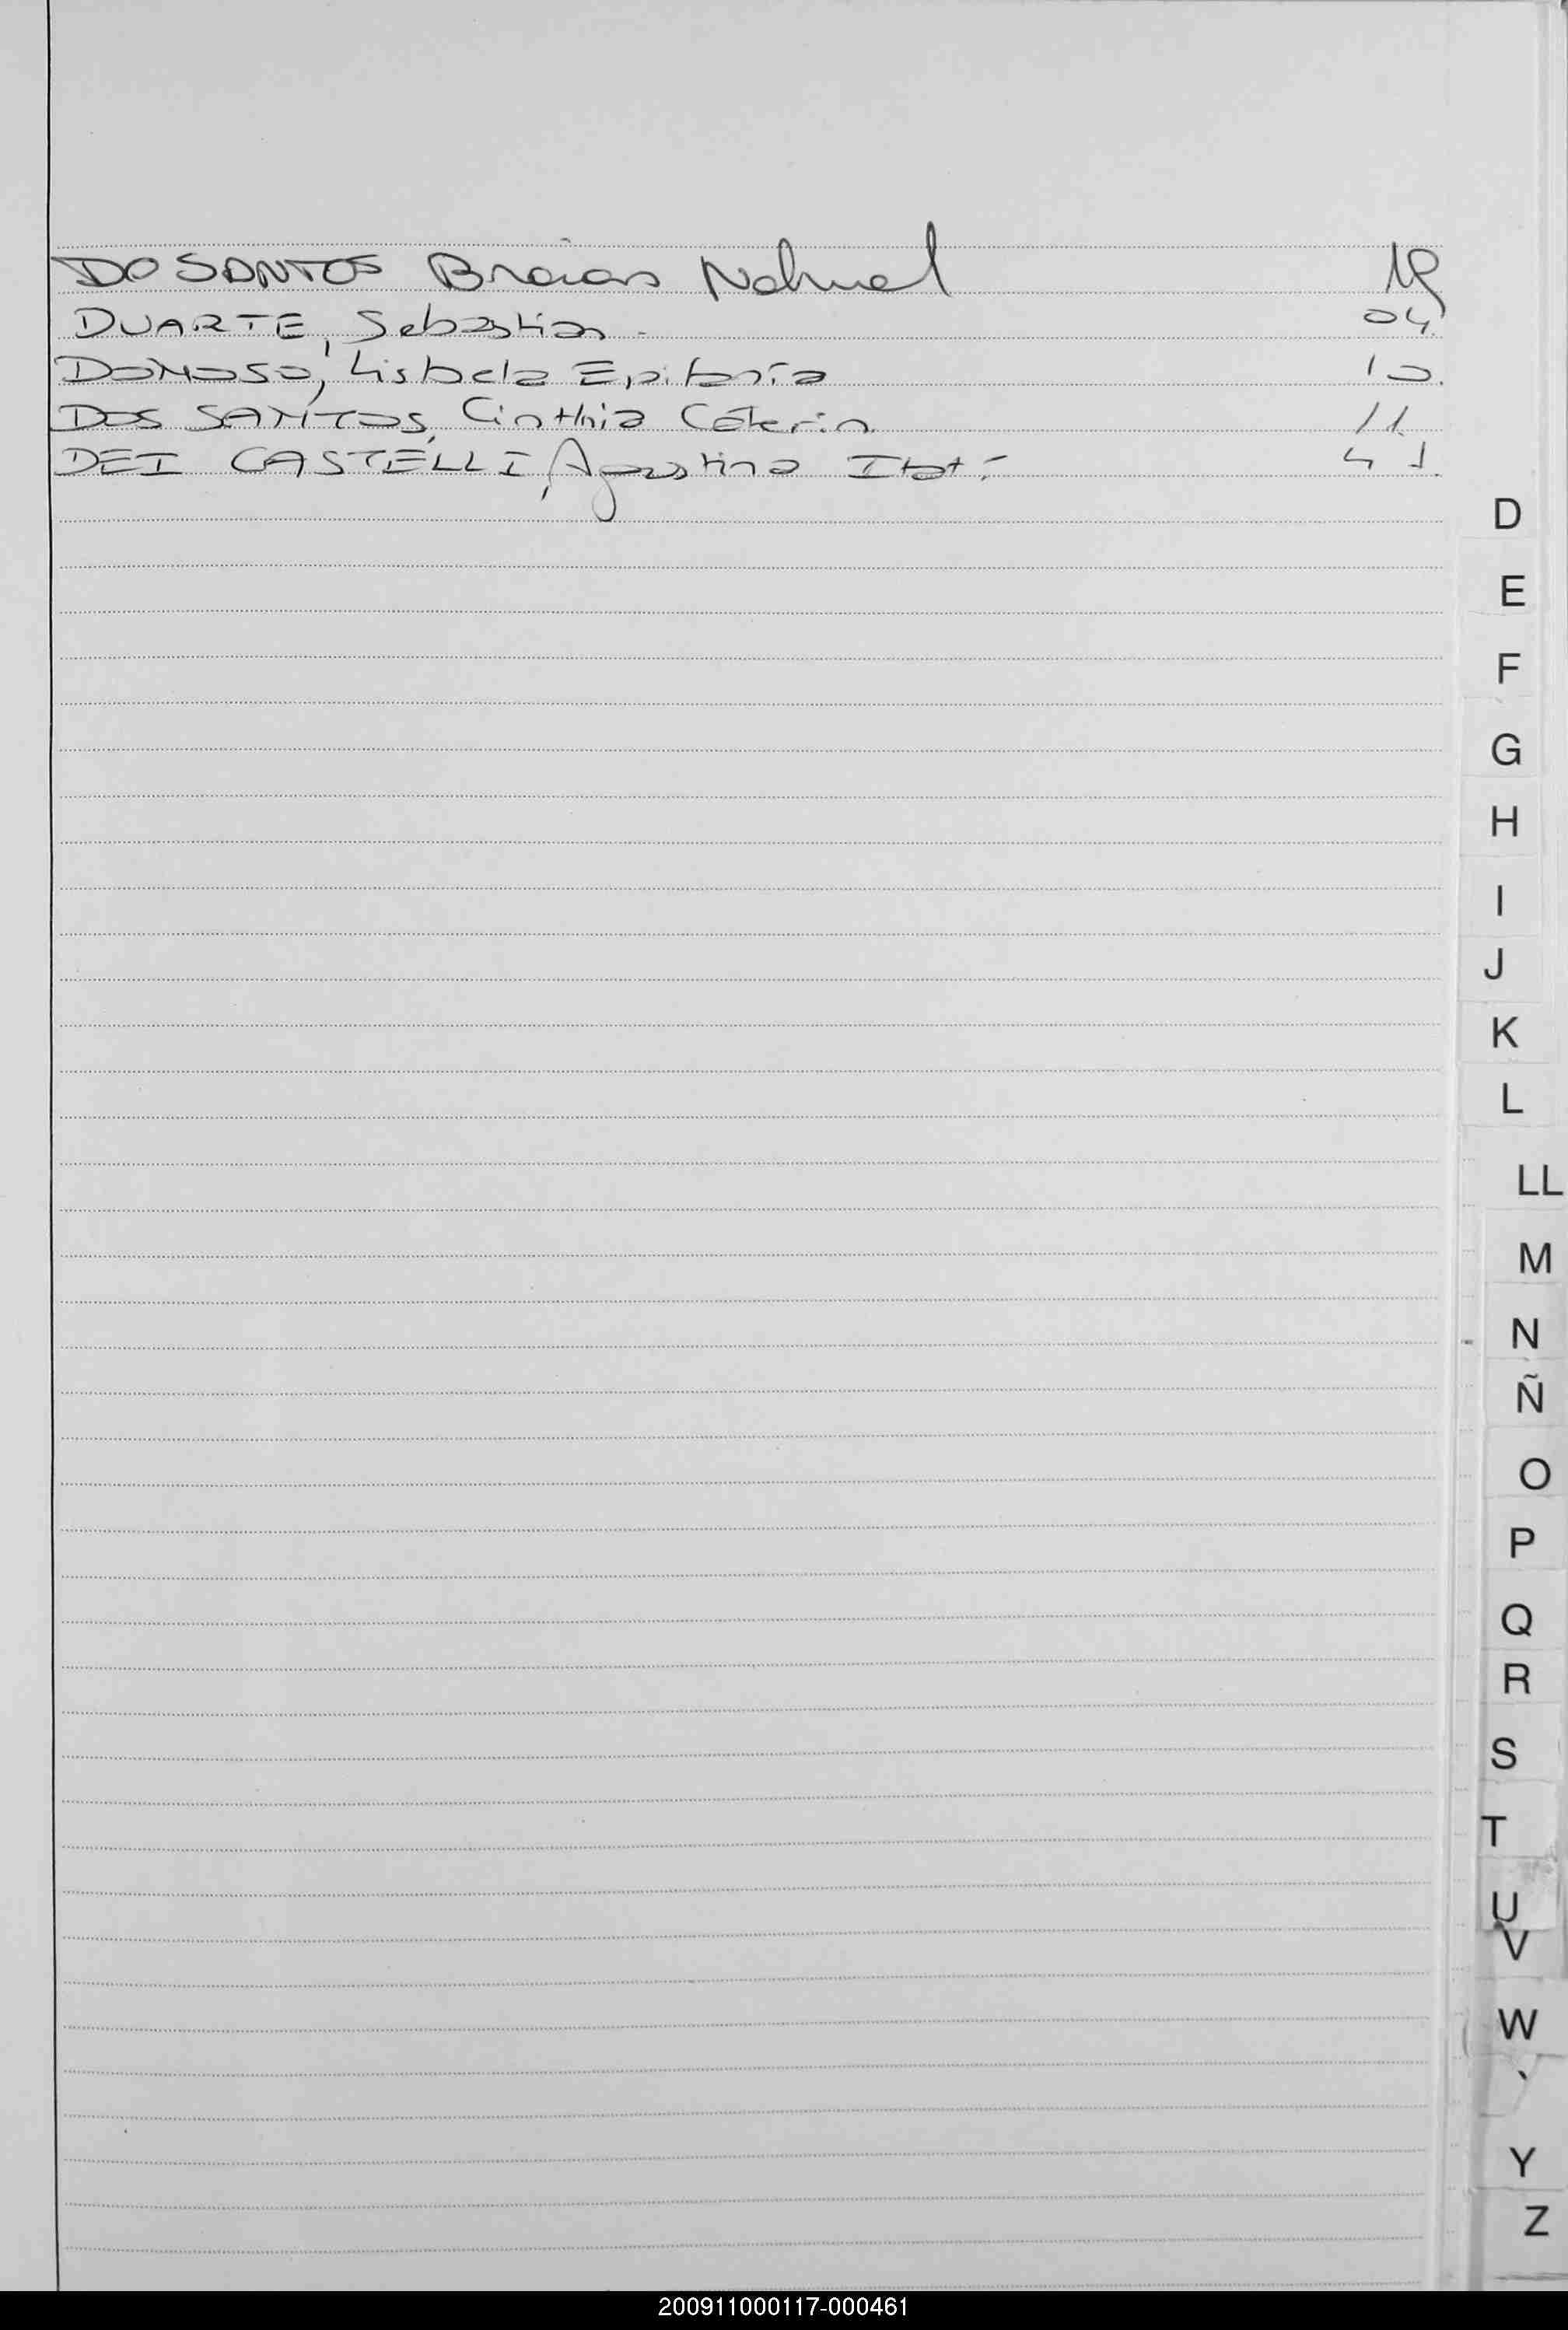 DO SANTOS Braian Nahuel 19
DUARTE, Sebastian - 04
DONOSO, Lisbela Epifanía 10.
DOS SANTOS, Cinthia Caterin. 11.
DEI CASTELLI, Agustina Itatí 41.
D
E
F
G
H
I
J
K
L
LL
M
N
Ñ
O
P
Q
R
S
T
U
V
W
Y
Z
200911000117-000461